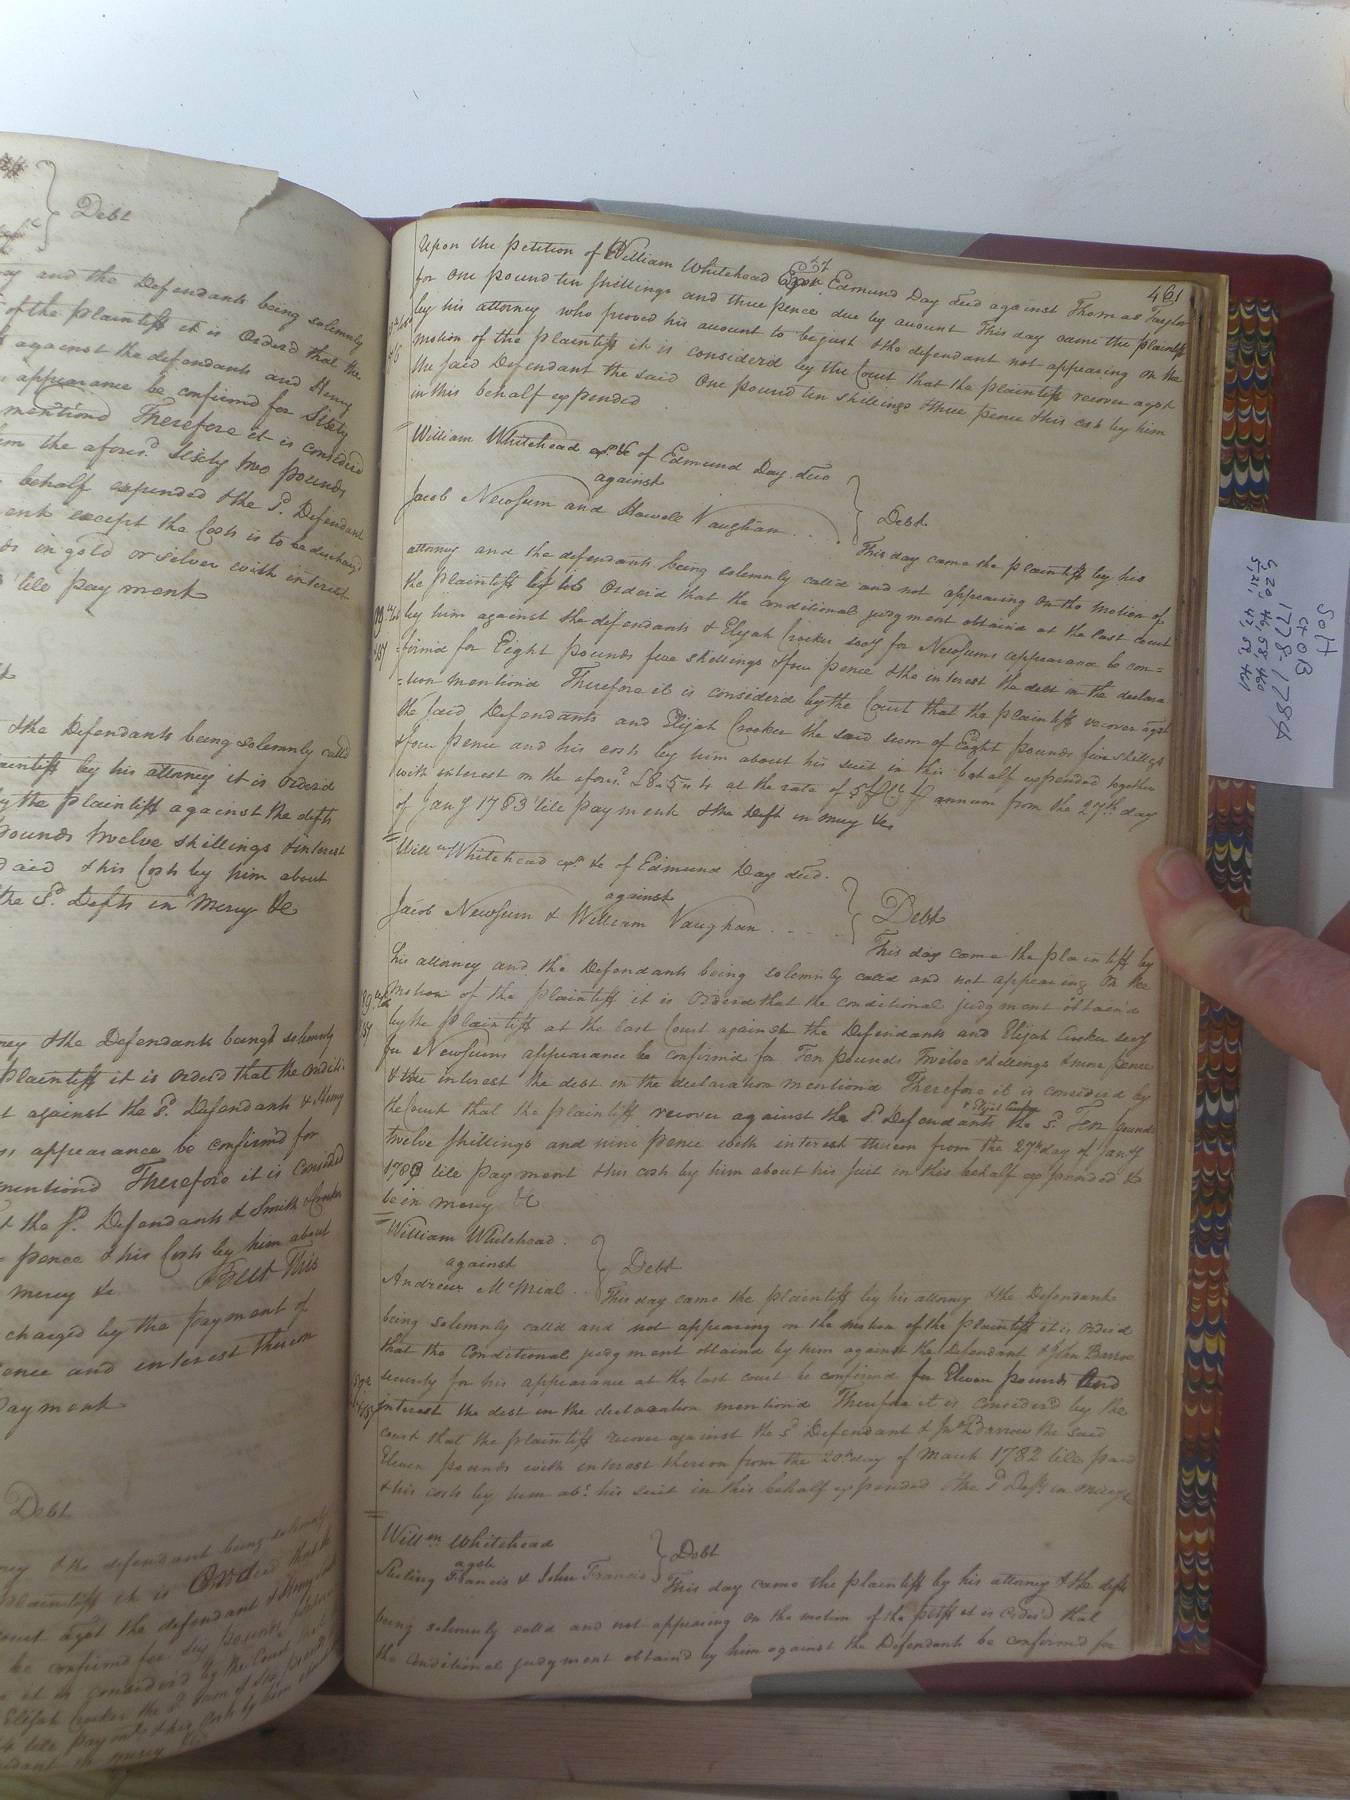 Debt
and the Defendants being solemnly
of the plaintiff it is Orderd that the
against the defendants and Henry
appearance be confirmd for Sixty
mentiond Therefore it is considerd
the afores.d Sixty two pounds
behalf expended & the S.d Defendant
except the Costs is to be discharg'd
in gold or silver with interest
tile payment
& the Defendants being solemnly calld
plaintiff by his attorney it is orderd
by the plaintiff against the defts
pounds twelve shillings & interest
said & his Costs by him about
the S.d Defts in mercy &c
& the Defendants being solemnly
plaintiff it is orderd that the conditi-
against the S.d Defendants & Henry
appearance be confirm'd for
mentiond Therefore it is considerd
the S.d Defendants & Smith & Crocker
pence & his Costs by him about
mercy &c But This
charged by the payment of
pence and interest thereon
payment
Debt
& the defendant being solemnly
plaintiff it is Orderd that the
court agst the defendant & Henry
be confirmd for six pounds
it is considerd by the Court that
Elijah Crocker the sd sum of six pounds
tile payment & his Costs by him
in mercy
537
461
Upon the petition of William Whitehead Exor Edmund Day decd against Thomas Taylor
for One pound ten shillings and three pence due by account This day came the plaintiff
by his attorney who proved his account to be just & the defendant not appearing On the
motion of the plaintiff it is considerd by the Court that the plaintiff recover agst
the said Defendant the said One pound ten shillings & three pence & his costs by him
in this behalf expended
William Whitehead exr &c of Edmund Day decd
against
Jacob Newsum and Howell Vaughan
Debt
This day came the plaintiff by his
attorney and the defendants being solemnly calld and not appearing On the motion of
the plaintiff it is Orderd that the conditional judgment obtaind at the last court
by him against the defendants & Elijah Crocker secy for Newsums appearance be con=
=firmd for Eight pounds five shillings & four pence & the interest the debt in the declara
=tion mentiond Therefore it is considerd by the Court that the plaintiff recover agst
the said Defendants and Elijah Crocker the said sum of Eight pounds five shillgs
& four pence and his costs by him about his suit in this behalf expended together
with interest on the afores.d £8..5..4 at the rate of 5 pCt p annum from the 27th day
of Jany 1783 tile payment & the Deft in mercy &c
Willm Whitehead exr &c of Edmund Day decd.
against
Jacob Newsum & William Vaughan
Debt
This day came the plaintiff by
his attorney and the Defendants being solemnly calld and not appearing On the
motion of the plaintiff it is Orderd that the conditional judgment obtain'd
by the plaintiff at the last Court against the Defendants and Elijah Crocker secy
for Newsums appearance be confirmd for Ten pounds Twelve shillings & nine pence
& the interest the debt in the declaration mentiond Therefore it is considerd by
the Court that the plaintiff recover against the S.d Defendants & Elijah Crocker the S.d Ten pounds
twelve shillings and nine pence with interest thereon from the 27th day of Jany
1783 tile payment & his costs by him about his suit in this behalf expended &c
be in mercy &c
William Whitehead
against
Andrew McMial
Debt
This day came the plaintiff by his attorney & the Defendant
being solemnly calld and not appearing on the motion of the plaintiff it is Orderd
that the Conditional judgment obtaind by him against the Defendant & John Barrow
security for his appearance at the last court be confirmd for Eleven pounds And
interest the debt in the declaration mentiond Therefore it is considerd by the
court that the plaintiff recover against the S.d Defendant & Jno Barrow the said
Eleven pounds with interest thereon from the 20th day of March 1782 tile paid
& his costs by him abt his suit in this behalf expended & the S.d Deft in mercy &c
Willm Whitehead
agst
Sterling Francis & John Francis
Debt
This day came the plaintiff by his attorney & the defts
being solemnly calld and not appearing On the motion of the pltff it is Orderd that
the Conditional judgment obtaind by him against the Defendants be confirmed for
SoH
Ct OB
1778-1784
6,20, 46, 58, 460
5,21, 47, 59, 461